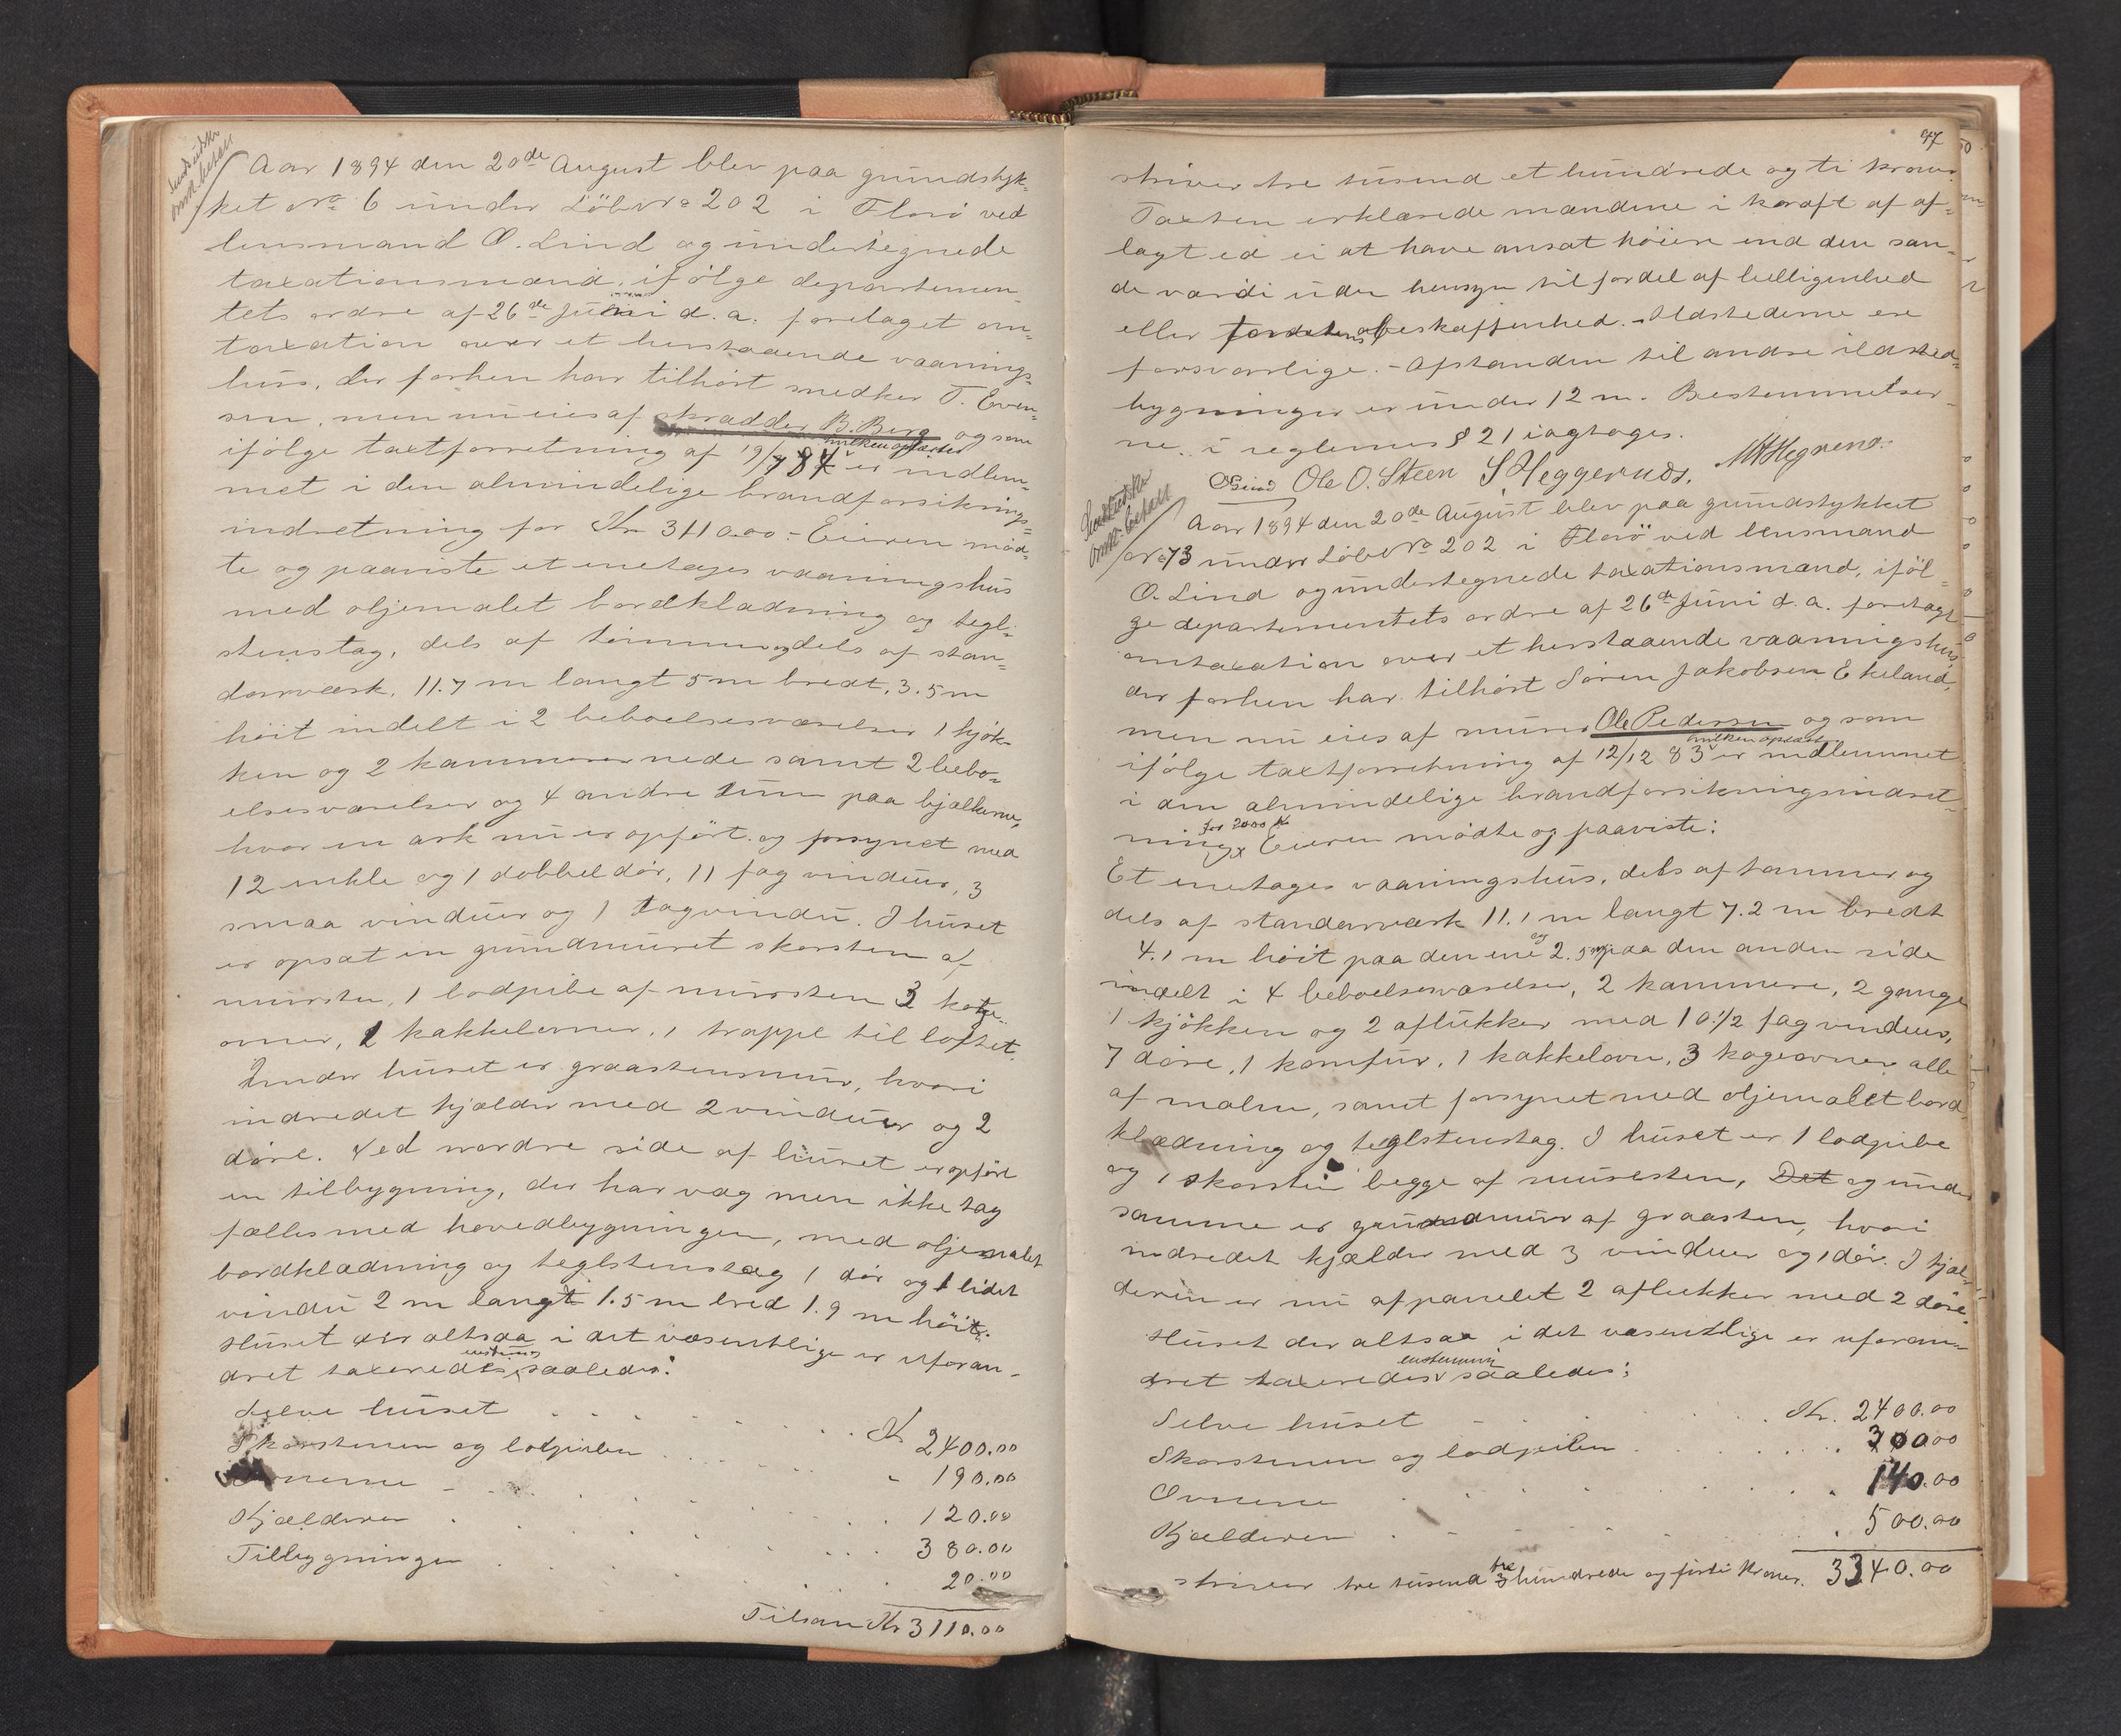 Aar 1894 den 20de August blev paa grundstyk-
ket No 6 under Löbe No 202 i Florö ved
lensmand O. Lind og undertegnede
taxationsmænd, ifölge departemen-
tets ordre af 26de Juni d. a. foretaget om-
taxation over et henstaaende vaanings-
hus, der forhen har tilhört snedker T. Even-
sen, men nu eies af skrædder B. Berg og som
ifölge taxtforretning af 19/7 84 er indlem-
met i den almindelige brandforsikrings-
indretning for Kr 3110.00 - Eieren möd-
te og paaviste et enetages vaaningshus
med oljemalet bordklædning og tegl-
stenstag, dels af tömmer og dels af stan-
darværk, 11.7 m langt 5 m bredt, 3.5 m
höit indelt i 2 beboelsesværelser 1 kjök-
ken og 2 kammerer nede samt 2 bebo-
elsesværelser og 4 andre rum paa bjælkerne,
hvor en ark nu er opfört og forsynet med
12 enkle og 1 dobbel dör, 11 fag vinduer, 3
smaa vinduer og 1 tagvindu. I huset
er opsat en grundmuret skorsten af
mursten, 1 lodpibe af mursten 3 koge-
ovner, 2 kakkelovner, 1 trappe til loftet.
Under huset er graastensmur, hvori
indredet kjælder med 2 vinduer og 2
döre. Ved nordre side af huset er opfört
en tilbygning, der har væg men ikke tag
fælles med hovedbygningen, med oljemalet
bordklædning og teglstenstag 1 dör og 1 lidet
vindu 2 m langt 1.5 m bred 1.9 m höit.
Huset der altsaa i det væsentlige er uforan-
dret taxeredes enstemmig saaledes:
Selve huset . . . . Kr 2400.00
Skorstenen og lodpiben . . . . 190.00
Ovnerne . . . . 120.00
Kjælderen . . . . 380.00
Tilbygningen . . . . 20.00
Tilsam Kr 3110.00
97
skriver tre tusend et hundrede og ti kroner.
Taxten erklærede mændene i kraft af af-
lagt ed ei at have ansat höiere end den san-
de værdi uden hensyn til fordel af beliggenhed
eller beskaffenhed. - Ildstederne ere
forsvarlige. - Afstanden til andre ildsted-
bygninger er under 12 m. Bestemmelser-
ne i reglernes § 21 iagtages.
OLind Ole O. Steen S Heggernæs.
Aar 1894 den 20de August blev paa grundstykket
No 73 under Löbe No 202 i Florö ved lensmand
O. Lind og undertegnede taxationsmænd, iföl-
ge departementets ordre af 26de Juni d. a. foretaget
omtaxation over et henstaaende vaaningshus
der forhen har tilhört Sören Jakobsen Ekeland,
men nu eies af murer Ole Pedersen og som
ifölge taxtforretning af 12/12 83 er indlemmet
i den almindelige brandforsikringsindret-
ning for 2000 Kr Eieren mödte og paaviste:
Et enetages vaaningshus, dels af tømmer og
dels af standarværk 11.1 m langt 7.2 m bredt
4.1 m höit paa den ene og 2.5 m paa den anden side
indelt i 4 beboelsesværelser, 2 kammere, 2 gange
1 kjökken og 2 aflukker med 10 1/2 fag vinduer,
7 döre, 1 komfur, 1 kakkelovn, 3 kogeovner alle
af malm, samt forsynet med oljemalet bord-
klædning og teglstenstag. I huset er 1 lodpibe
og 1 skorsten begge af mursten, Det og under
samme er grundmur af graasten, hvori
indredet kjælder med 3 vinduer og 1 dör. I kjæl-
deren er nu afpanelet 2 aflukker med 2 döre.
Huset der altsaa i det væsentlige er uforan-
dret taxeredes enstemmig saaledes:
Selve huset . . . . Kr. 2400.00
Skorstenen og lodpiben . . . . 300.00
Ovnene . . . . 140.00
Kjælderen . . . . 500.00
skriver tre tusend tre hundrede og firti Kroner. 3340.00